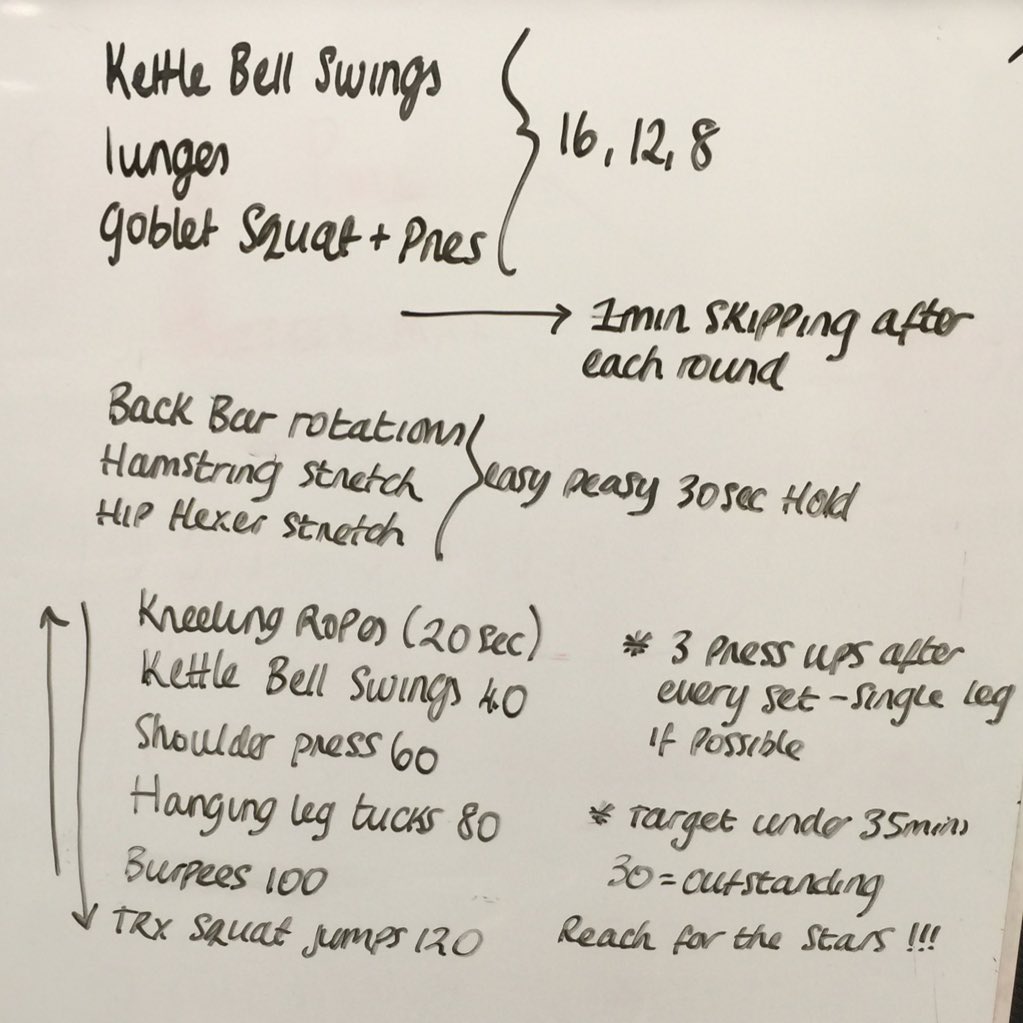 Kettle Bell Swings
lunges
goblet Squat + Pres
16, 12, 8
1min SKIPPING after
each round
Back Bar rotations
Hamstring stretch
HIP flexer stretch
easy peasy 30sec Hold
Kneeling Ropes (20 sec)
Kettle Bell Swings 40
Shoulder press 60
Hanging leg tucks 80
Burpees 100
TRX squat jumps 120
* 3 press ups after
every set - single leg
if possible
* Target under 35mins
30 = outstanding
Reach for the stars !!!